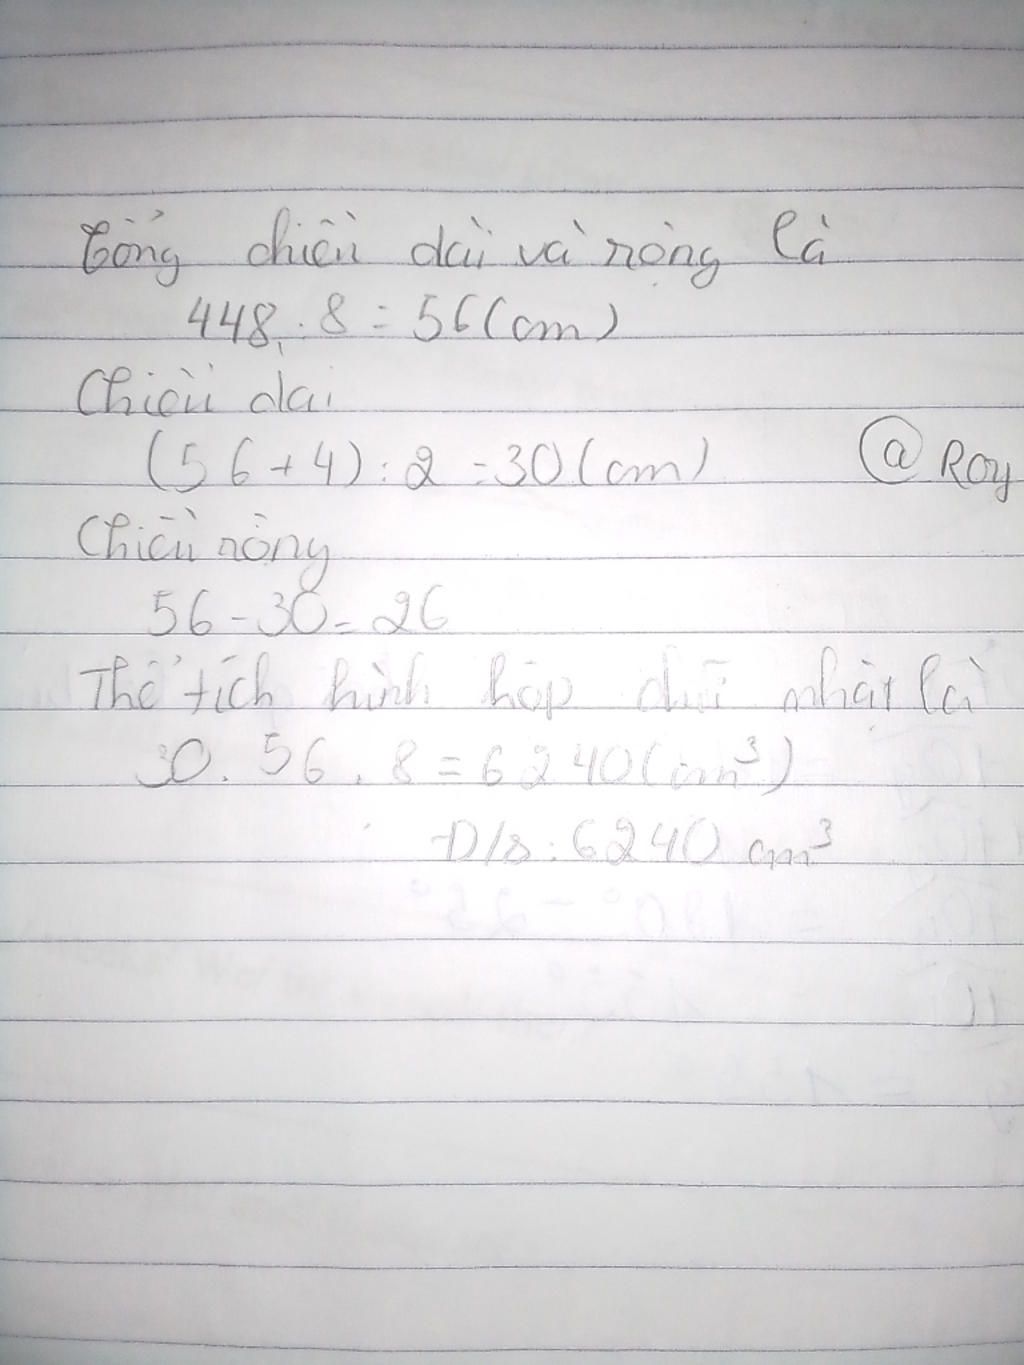 Tổng chiều dài và rộng là
448 : 8 = 56 (cm)
Chiều dài
(56 + 4) : 2 = 30 (cm)
@ Roy
Chiều rộng
56 - 30 = 26
Thể tích hình hộp chữ nhật là
30 . 56 . 8 = 6240 (cm³)
Đ/s : 6240 cm³